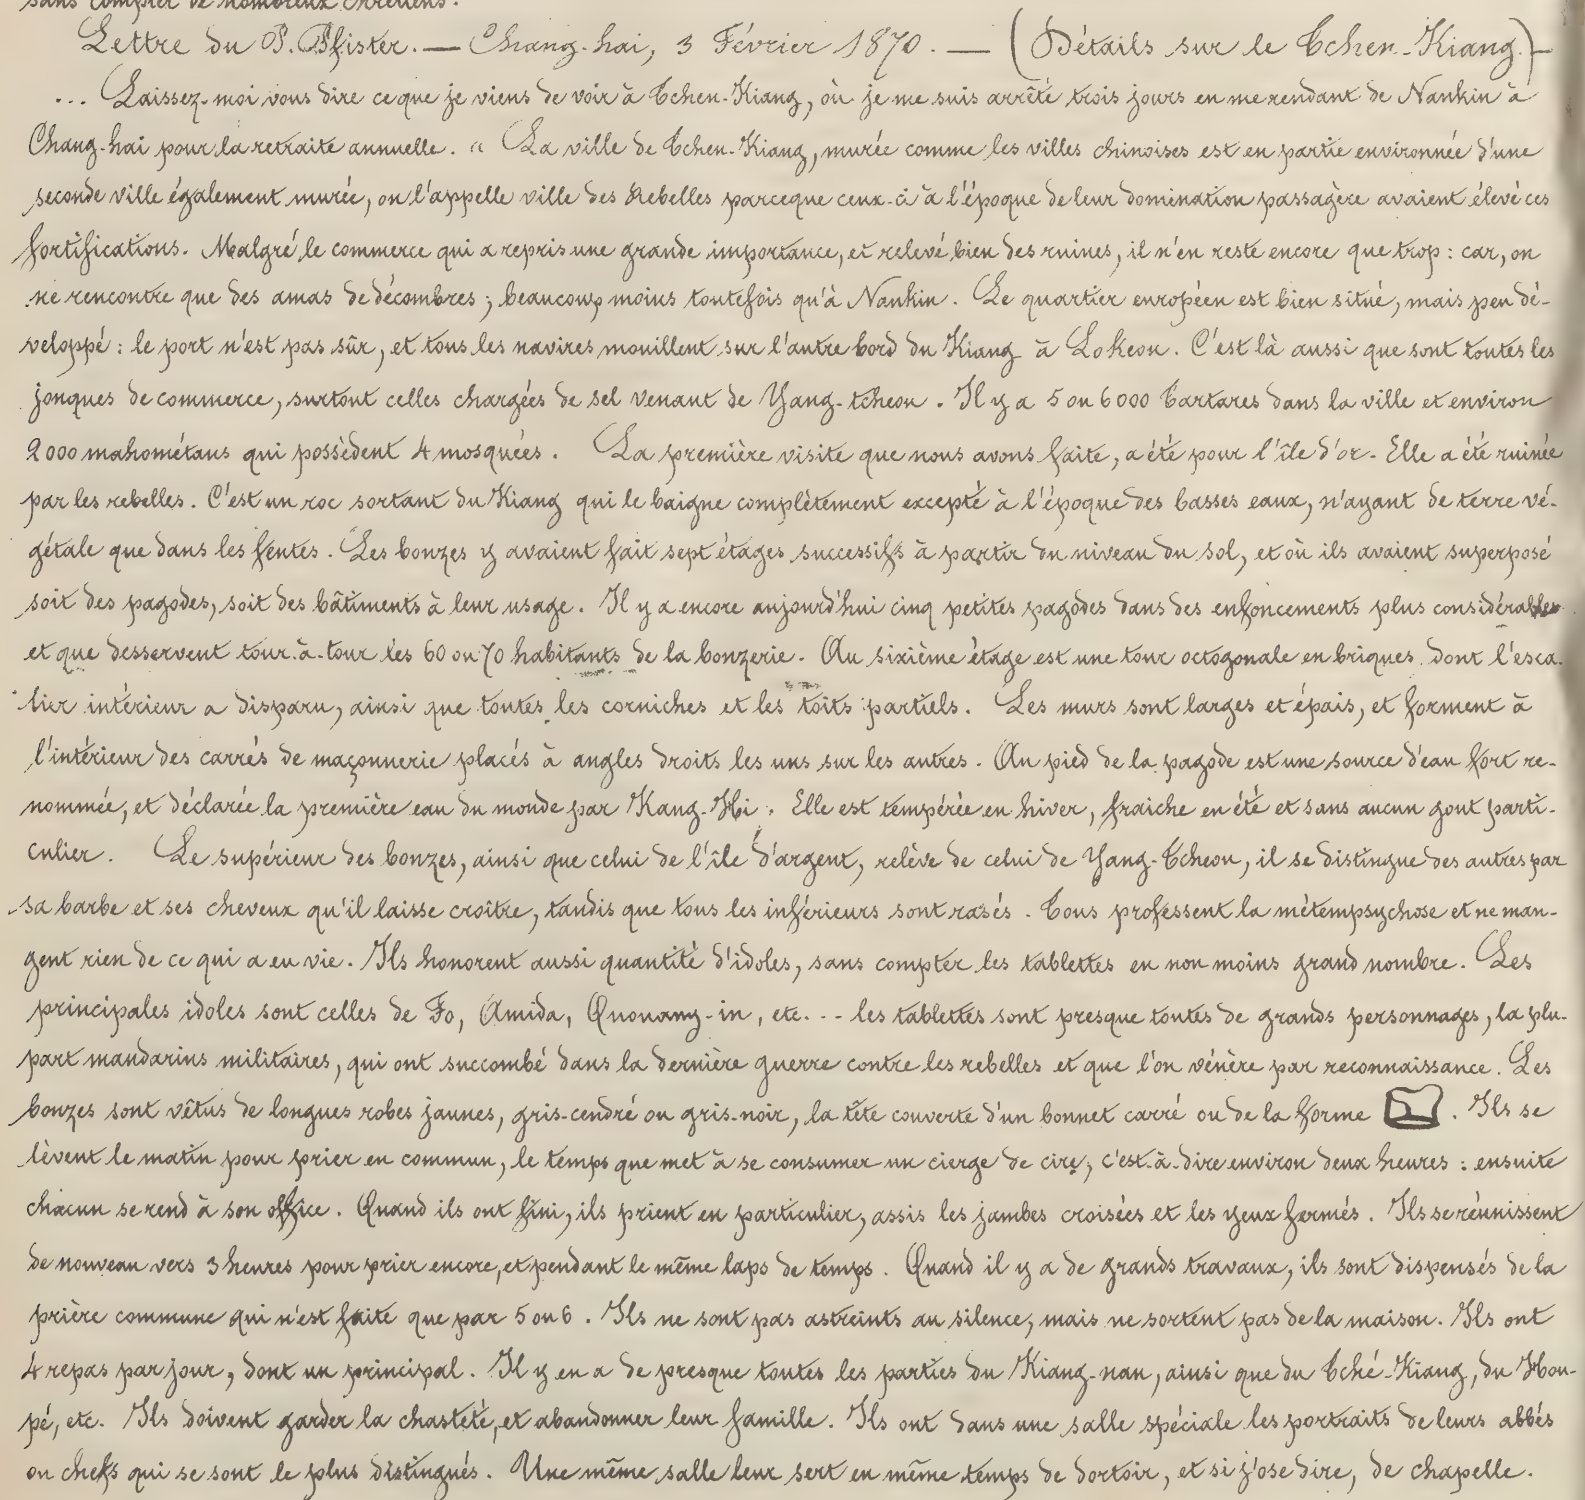 sans compter de nombreux chrétiens.
Lettre du P. Pfister. — Chang-hai, 3 Février 1870. — (Détails sur le Tchen-Kiang.) —
... Laissez-moi vous dire ce que je viens de voir à Tchen-Kiang, où je me suis arrêté trois jours en me rendant de Nankin à
Chang-hai pour la retraite annuelle. " La ville de Tchen-Kiang, murée comme les villes chinoises est en partie environnée d'une
seconde ville également murée, on l'appelle ville des Rebelles parceque ceux-ci à l'époque de leur domination passagère avaient élevé ces
fortifications. Malgré le commerce qui a repris une grande importance, et relevé bien des ruines, il n'en reste encore que trop : car, on
ne rencontre que des amas de décombres ; beaucoup moins toutefois qu'à Nankin. Le quartier européen est bien situé, mais peu dé-
veloppé : le port n'est pas sûr, et tous les navires mouillent sur l'autre bord du Kiang à Lokeou. C'est là aussi que sont toutes les
jonques de commerce, surtout celles chargées de sel venant de Yang-tcheou. Il y a 5 ou 6000 Tartares dans la ville et environ
2000 mahométans qui possèdent 4 mosquées. La première visite que nous avons faite, a été pour l'île d'or. Elle a été ruinée
par les rebelles. C'est un roc sortant du Kiang qui le baigne complètement excepté à l'époque des basses eaux, n'ayant de terre vé-
gétale que dans les fentes. Les bonzes y avaient fait sept étages successifs à partir du niveau du sol, et où ils avaient superposé
soit des pagodes, soit des bâtiments à leur usage. Il y a encore aujourd'hui cinq petites pagodes dans des enfoncements plus considérables
et que desservent tour-à-tour les 60 ou 70 habitants de la bonzerie. Au sixième étage est une tour octogonale en briques dont l'esca-
lier intérieur a disparu, ainsi que toutes les corniches et les toits partiels. Les murs sont larges et épais, et forment à
l'intérieur des carrés de maçonnerie placés à angles droits les uns sur les autres. Au pied de la pagode est une source d'eau fort re-
nommée, et déclarée la première eau du monde par Kang-Hi. Elle est tempérée en hiver, fraiche en été et sans aucun gout parti-
culier. Le supérieur des bonzes, ainsi que celui de l'île d'argent, relève de celui de Yang-Tcheou, il se distingue des autres par
sa barbe et ses cheveux qu'il laisse croître, tandis que tous les inférieurs sont rasés. Tous professent la métempsychose et ne man-
gent rien de ce qui a eu vie. Ils honorent aussi quantité d'idoles, sans compter les tablettes en non moins grand nombre. Les
principales idoles sont celles de Fo, Amida, Quouang-in, etc... les tablettes sont presque toutes de grands personnages, la plu-
part mandarins militaires, qui ont succombé dans la dernière guerre contre les rebelles et que l'on vénère par reconnaissance. Les
bonzes sont vêtus de longues robes jaunes, gris-cendré ou gris-noir, la tête couverte d'un bonnet carré ou de la forme . Ils se
lèvent le matin pour prier en commun, le temps que met à se consumer un cierge de cire, c'est-à-dire environ deux heures : ensuite
chacun se rend à son office. Quand ils ont fini, ils prient en particulier, assis les jambes croisées et les yeux fermés. Ils se réunissent
de nouveau vers 3 heures pour prier encore, et pendant le même laps de temps. Quand il y a de grands travaux, ils sont dispensés de la
prière commune qui n'est faite que par 5 ou 6. Ils ne sont pas astreints au silence, mais ne sortent pas de la maison. Ils ont
4 repas par jour, dont un principal. Il y en a de presque toutes les parties du Kiang-nan, ainsi que du Tché-Kiang, du Hou-
pé, etc. Ils doivent garder la chasteté, et abandonner leur famille. Ils ont dans une salle spéciale les portraits de leurs abbés
ou chefs qui se sont le plus distingués. Une même salle leur sert en même temps de dortoir, et si j'ose dire, de chapelle.